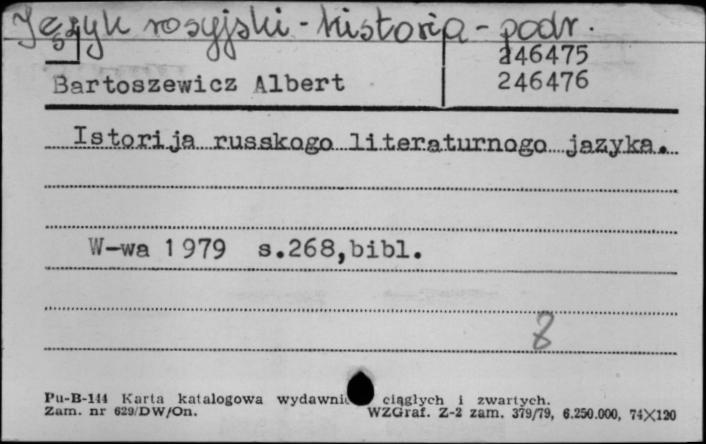 Język rosyjski - historia - podr.
246475
Bartoszewicz Albert 246476
Istorija russkogo literaturnogo jazyka.
W-wa 1979 s.268,bibl.
8
Pu-B-144 Karta katalogowa ciągłych i zwartych.
Zam. nr 629/DW/On. WZGraf. Z-2 zam. 379/79, 6.250.000, 74X120